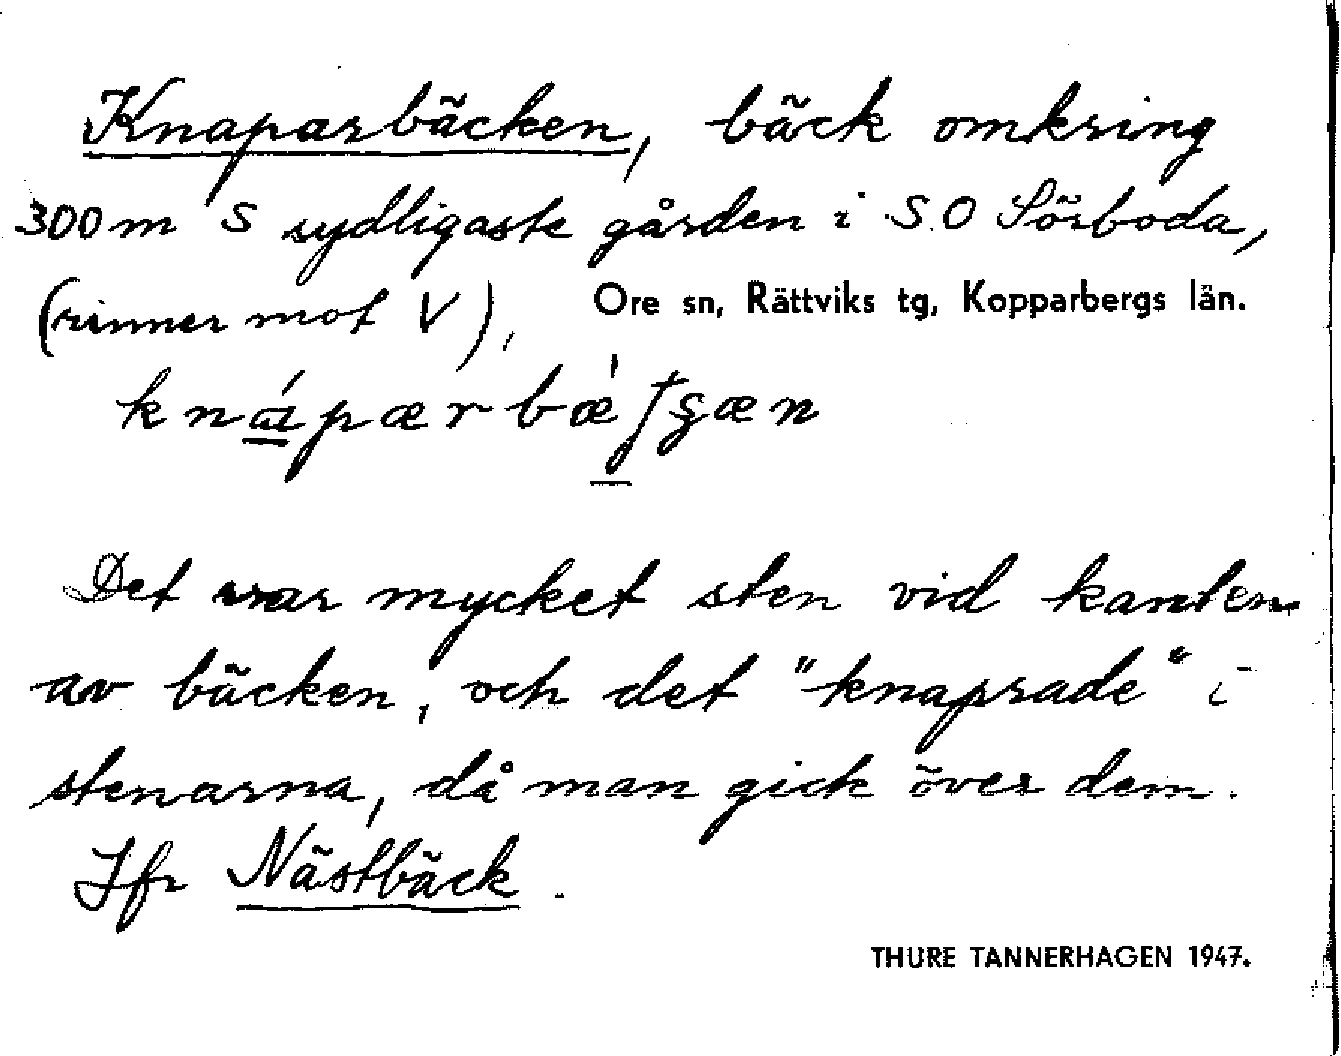 Knaparbäcken, bäck omkring
300 m S sydligaste gården i S.O Sörboda,
(rinner mot V), Ore sn, Rättviks tg, Kopparbergs län.
Det var mycket sten vid kanten
av bäcken, och det "knaprade" i
stenarna, då man gick över dem.
Jfr Nästbäck.
THURE TANNERHAGEN 1947.